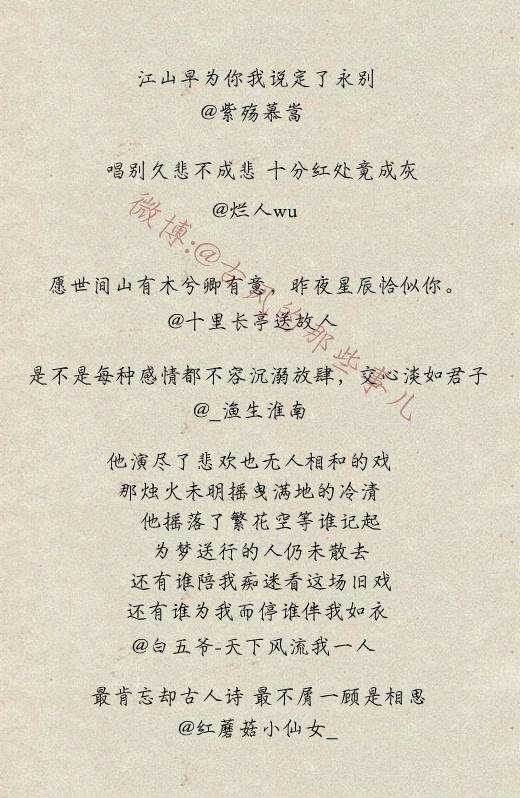 江山早为你我说定了永别
@紫殇慕嵩
唱别久悲不成悲 十分红处竟成灰
@烂人wu
愿世间山有木兮卿有意，昨夜星辰恰似你。
@十里长亭送故人
是不是每种感情都不容沉溺放肆，交心淡如君子
@_渔生淮南
他演尽了悲欢也无人相和的戏
那烛火未明摇曳满地的冷清
他摇落了繁花空等谁记起
为梦送行的人仍未散去
还有谁陪我痴迷看这场旧戏
还有谁为我而停谁伴我如衣
@白五爷-天下风流我一人
最肯忘却古人诗 最不屑一顾是相思
@红蘑菇小仙女_
微博:@古风的那些事儿